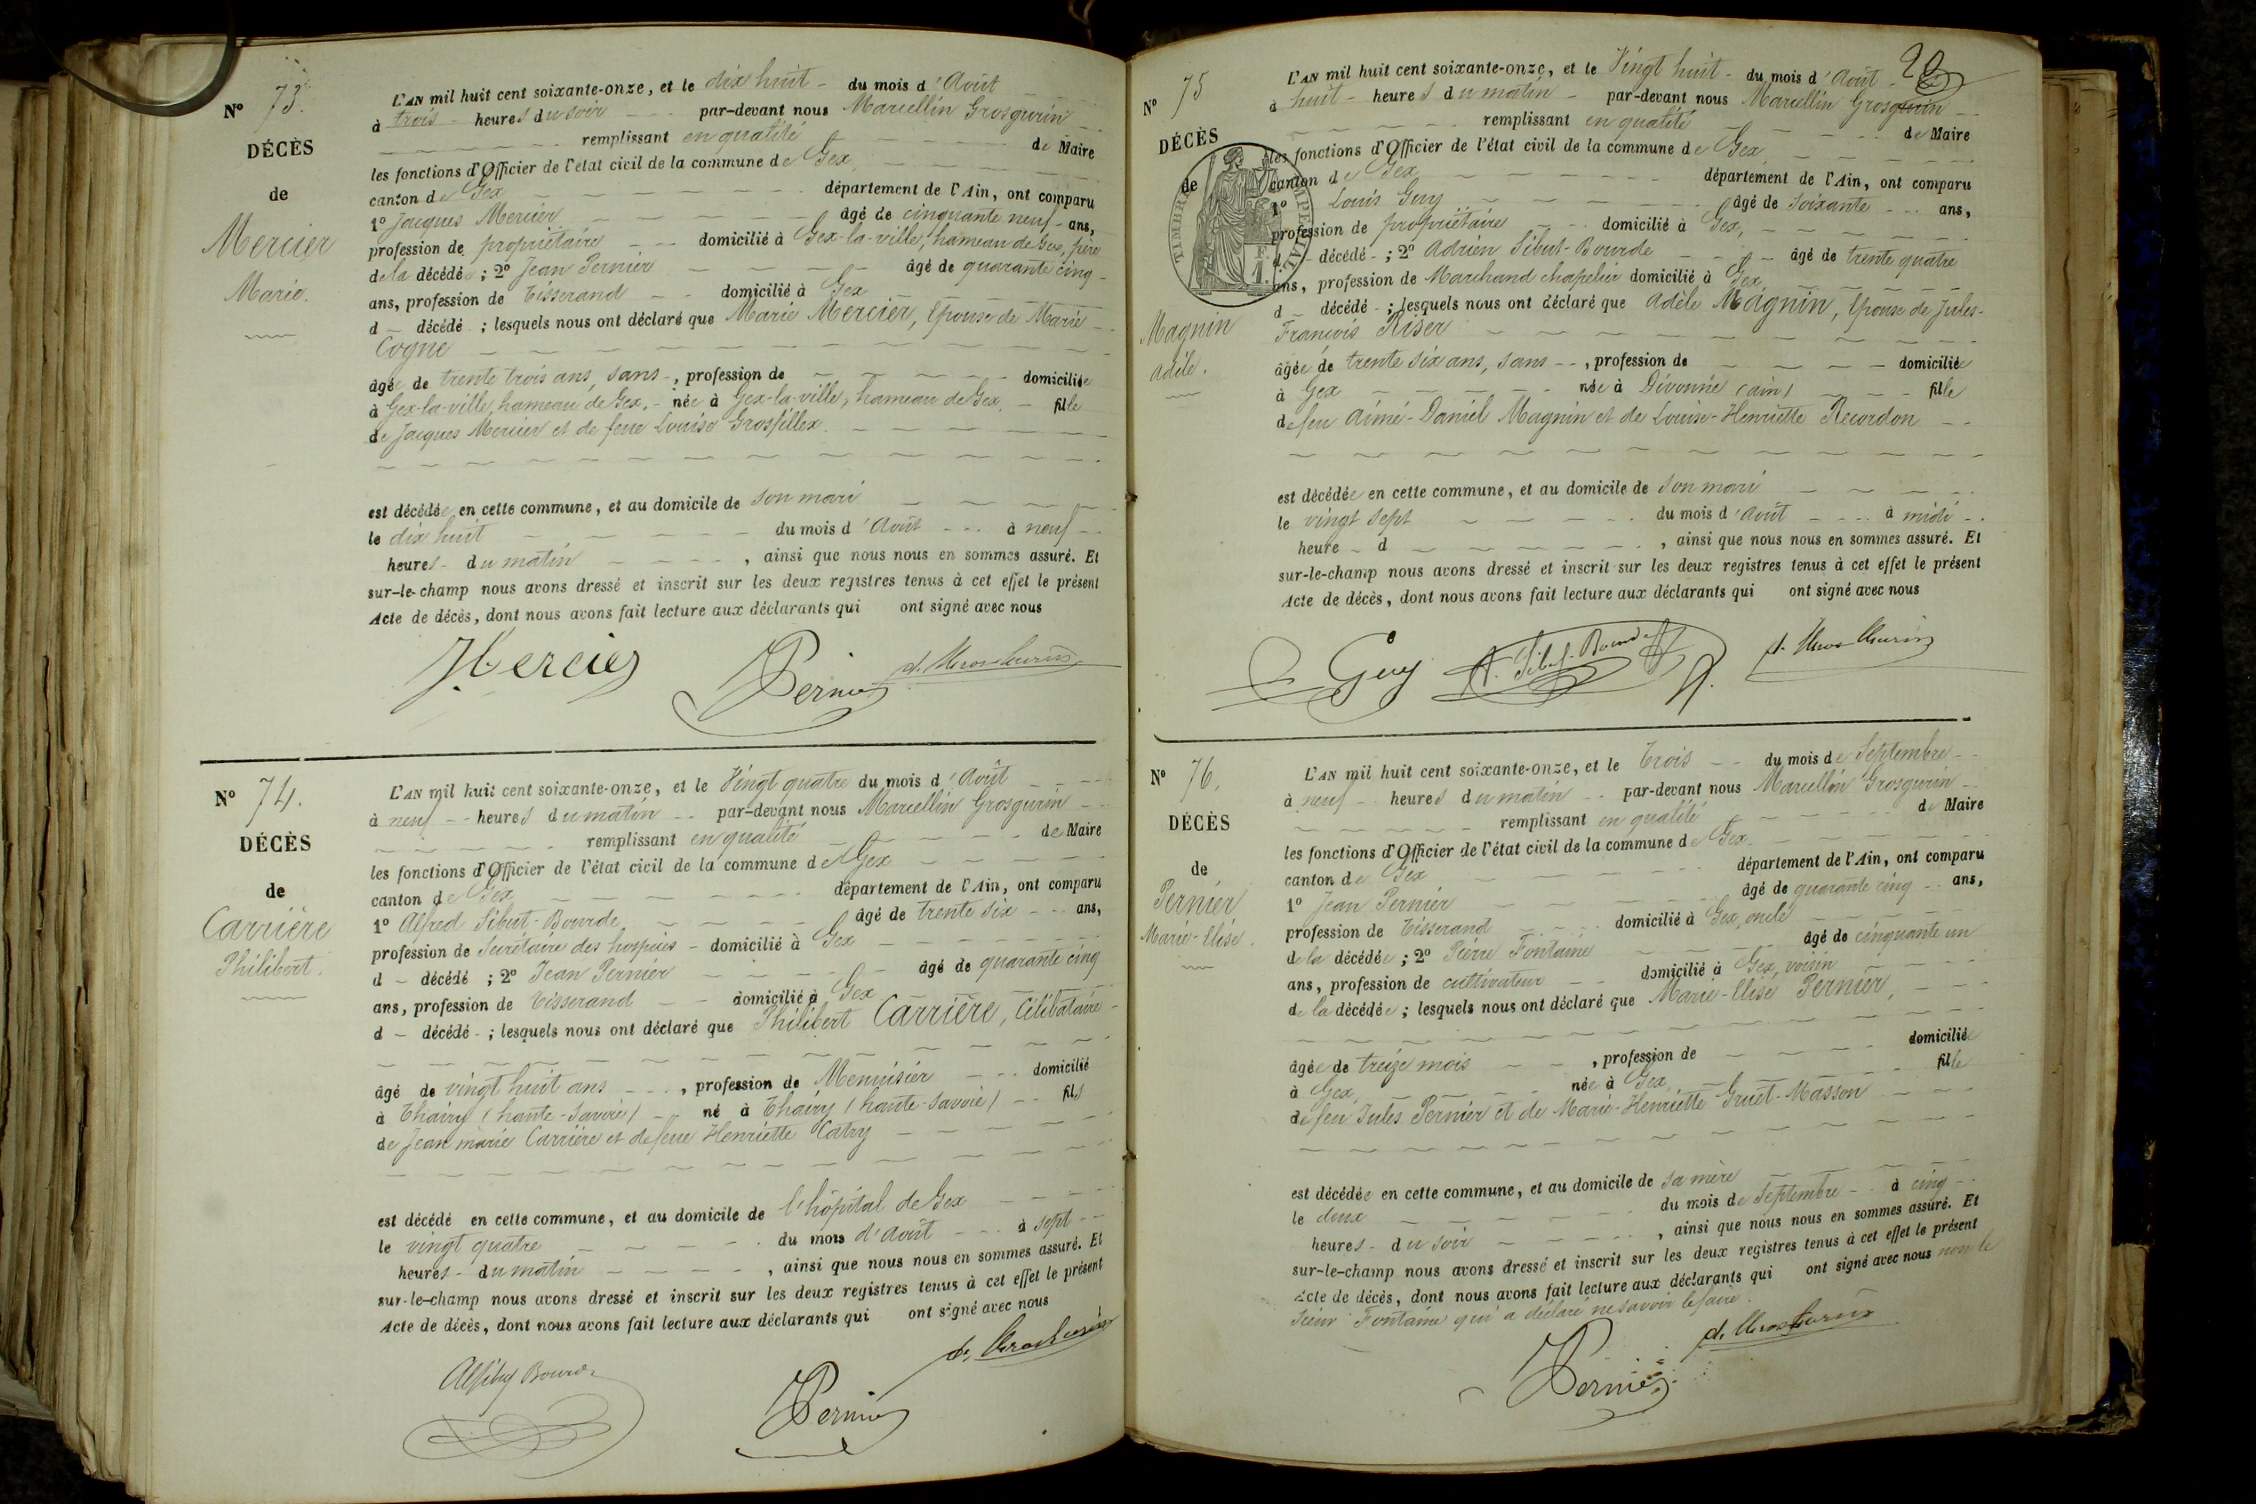 N° 73.
DÉCÈS
de
Mercier
Marie.
L'AN mil huit cent soixante-onze, et le dix huit - du mois d'Août
à trois - heures du soir - - - par-devant nous Marcellin Grosgurin
remplissant en qualité de Maire
les fonctions d'Officier de l'état civil de la commune de Gex
canton de Gex département de l'Ain, ont comparu
1° Jacques Mercier âgé de cinquante neuf - ans,
profession de propriétaire - - - domicilié à Gex-la-ville, hameau de Gex, père
de la décédée ; 2° Jean Pernier âgé de quarante cinq -
ans, profession de Tisserand - - domicilié à Gex
d - décédé ; lesquels nous ont déclaré que Marie Mercier, Epouse de Marie
Cogne
âgée de trente trois ans, sans -, profession de domiciliée
à Gex-la-ville, hameau de Gex, - née à Gex-la-ville, hameau de Gex, - fille
de Jacques Mercier et de feue Louise Grosfillex.
est décédée en cette commune, et au domicile de son mari
le dix huit du mois d'Août - - - à neuf - -
heures - du matin , ainsi que nous nous en sommes assuré. Et
sur-le-champ nous avons dressé et inscrit sur les deux registres tenus à cet effet le présent
Acte de décès, dont nous avons fait lecture aux déclarants qui ont signé avec nous
J. Mercier Pernier
N° 74.
DÉCÈS
de
Carrière
Philibert.
L'AN mil huit cent soixante-onze, et le Vingt quatre du mois d'Août
à neuf - - heures du matin - - par-devant nous Marcellin Grosgurin - -
remplissant en qualité de Maire
les fonctions d'Officier de l'état civil de la commune de Gex
canton de Gex département de l'Ain, ont comparu
1° Alfred Sibut-Bourde âgé de trente six - - ans,
profession de Secrétaire des hospices - domicilié à Gex
d - décédé ; 2° Jean Pernier âgé de quarante cinq
ans, profession de Tisserand - - domicilié à Gex
d - décédé - ; lesquels nous ont déclaré que Philibert Carrière, Célibataire -
âgé de vingt huit ans - - -, profession de Menuisier - - - domicilié
à Thairy (haute-Savoie) - - né à Thairy (haute-Savoie) - - fils
de Jean marie Carrière et de feue Henriette Catry
est décédé en cette commune, et au domicile de l'hôpital de Gex
le vingt quatre du mois d'Août - - - à sept - -
heures - du matin , ainsi que nous nous en sommes assuré. Et
sur-le-champ nous avons dressé et inscrit sur les deux registres tenus à cet effet le présent
Acte de décès, dont nous avons fait lecture aux déclarants qui ont signé avec nous
Pernier
20
N° 75
DÉCÈS
de
TIMBRE IMPERIAL
F.
1.
Magnin
Adèle.
L'AN mil huit cent soixante-onze, et le Vingt huit - du mois d'Août -
à huit - heures du matin - par-devant nous Marcellin Grosgurin
remplissant en qualité de Maire
les fonctions d'Officier de l'état civil de la commune de Gex
canton de Gex département de l'Ain, ont comparu
1° Louis Guy âgé de soixante - - - ans,
profession de propriétaire domicilié à Gex,
d - décédé - ; 2° Adrien Sibut-Bourde âgé de trente quatre
ans, profession de Marchand chapelier domicilié à Gex
d - décédé - ; lesquels nous ont déclaré que Adèle Magnin, Epouse de Jules-
François Riser
âgée de trente six ans, sans - -, profession de domiciliée
à Gex née à Divonne (ain) fille
de feu Aimé-Daniel Magnin et de Louise-Henriette Recordon - -
est décédée en cette commune, et au domicile de son mari
le vingt sept du mois d'Août - - - à midi - -
heure - d , ainsi que nous nous en sommes assuré. Et
sur-le-champ nous avons dressé et inscrit sur les deux registres tenus à cet effet le présent
Acte de décès, dont nous avons fait lecture aux déclarants qui ont signé avec nous
Guy A. Sibut-Bourde
N° 76.
DÉCÈS
de
Pernier
Marie-Elise.
L'AN mil huit cent soixante-onze, et le Trois - - du mois de Septembre - -
à neuf - heures du matin - - par-devant nous Marcellin Grosgurin - -
remplissant en qualité de Maire
les fonctions d'Officier de l'état civil de la commune de Gex
canton de Gex département de l'Ain, ont comparu
1° Jean Pernier âgé de quarante cinq - - ans,
profession de Tisserand domicilié à Gex, oncle
de la décédée ; 2° Pierre Fontaine âgé de cinquante un
ans, profession de cultivateur - - domicilié à Gex, voisin
de la décédée ; lesquels nous ont déclaré que Marie-Elise Pernier,
âgée de treize mois - - , profession de domiciliée
à Gex, née à Gex fille
de feu Jules Pernier et de Marie-Henriette Gruet-Masson
est décédée en cette commune, et au domicile de sa mère
le deux du mois de Septembre - - à cinq - -
heures - du soir , ainsi que nous nous en sommes assuré. Et
sur-le-champ nous avons dressé et inscrit sur les deux registres tenus à cet effet le présent
Acte de décès, dont nous avons fait lecture aux déclarants qui ont signé avec nous non le
Sieur Fontaine qui a déclaré ne savoir le faire.
Pernier